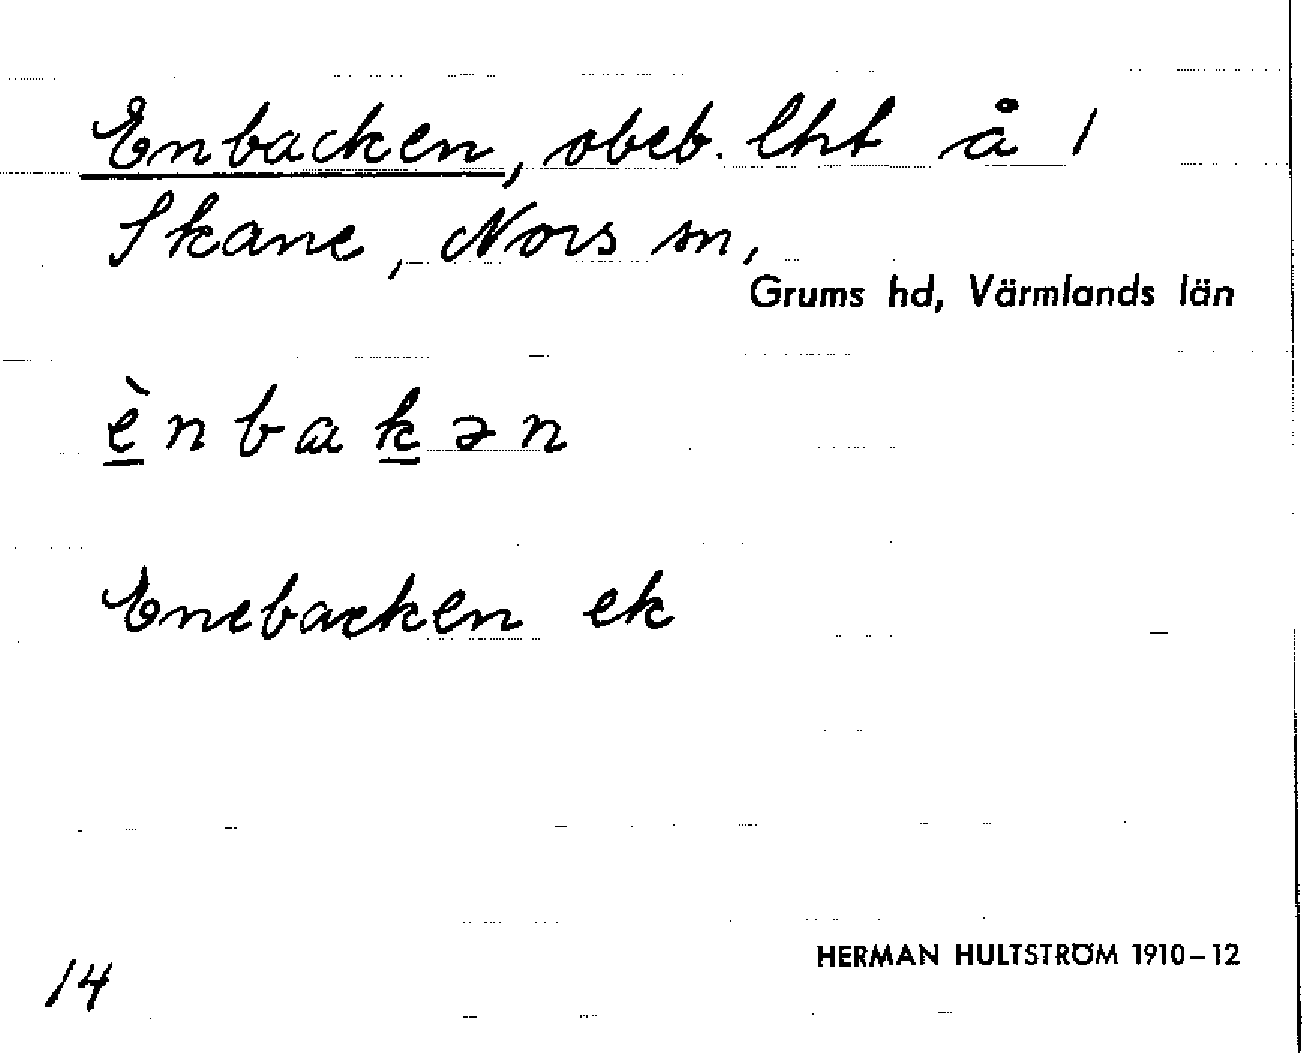 Enbacken, obeb. lht å 1
Skane, Nors sn,
Grums hd, Värmlands län
ènbakən
Enebacken ek
HERMAN HULTSTRÖM 1910–12
14